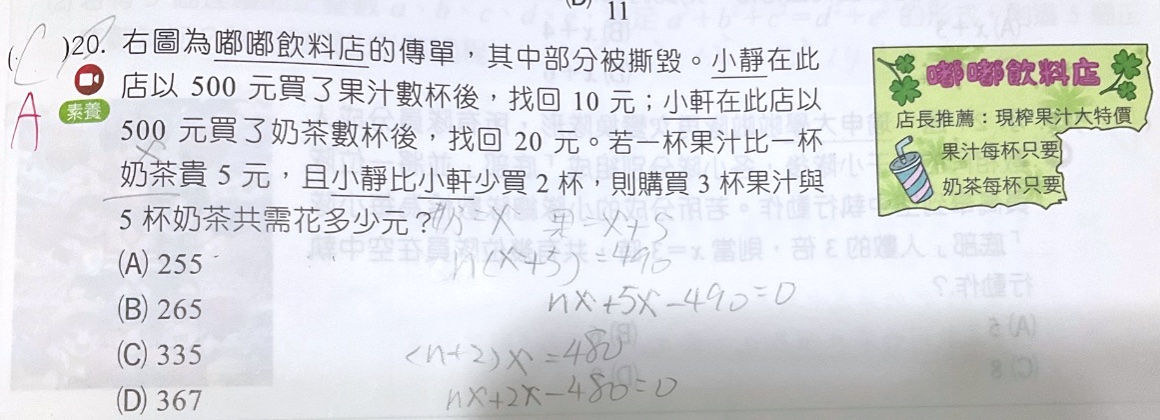 (D) 11
( C )20. 右圖為嘟嘟飲料店的傳單，其中部分被撕毀。小靜在此
A
素養
店以 500 元買了果汁數杯後，找回 10 元；小軒在此店以
500 元買了奶茶數杯後，找回 20 元。若一杯果汁比一杯
x
奶茶貴 5 元，且小靜比小軒少買 2 杯，則購買 3 杯果汁與
5 杯奶茶共需花多少元？
奶=x 果=x+5
(A) 255
n(x+5)=490
(B) 265
nx+5x-490=0
(C) 335
(n+2)x=480
(D) 367
nx+2x-480=0
嘟嘟飲料店
店長推薦：現榨果汁大特價
果汁每杯只要
奶茶每杯只要